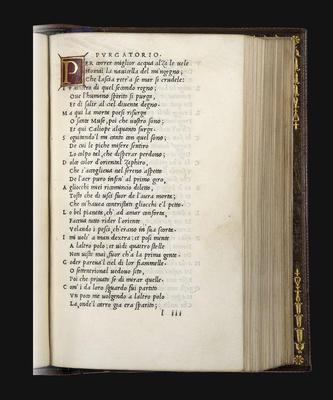 PVRGATORIO.
PER correr miglior acqua alza le uele
Homai la nauicella del mio ingegno;
Che lascia retro a se mar si crudele:
E cantero di quel secondo regno;
Oue l'humano spirito si purga,
Et di salir al ciel diuenta degno.
Ma qui la morta poesi risurga
O sante Muse, poi che uostro sono;
Et qui Calliope alquanto surga
Seguitando'l mi canto con quel sono;
Di cui le piche misere sentiro
Lo colpo tal, che disperar perdono;
Dolce color d'oriental Zaphiro,
Che s'accoglieua nel sereno aspetto
De l'aer puro infin' al primo giro,
A gliocchi miei ricomincio diletto,
Tosto ch'i usci fuor de l'aura morta;
Che m'hauea contristati gliocchi e'l petto.
Lo bel pianeta, ch'ad amar conforta,
Faceua tutto rider l'oriente
Velando i pesci, ch'erano in sua scorta.
I mi uolsi a man dextra; et posi mente
A laltro polo; et uidi quattro stelle
Non uiste mai, fuor ch'a la prima gente.
Goder pareua'l ciel di lor fiammelle.
O settentrional uedouo sito,
Poi che priuato se di mirar quelle.
Com'i da loro sguardo fui partito
Vn poco me uolgendo a laltro polo
La, onde'l carro gia era sparito;
I iii